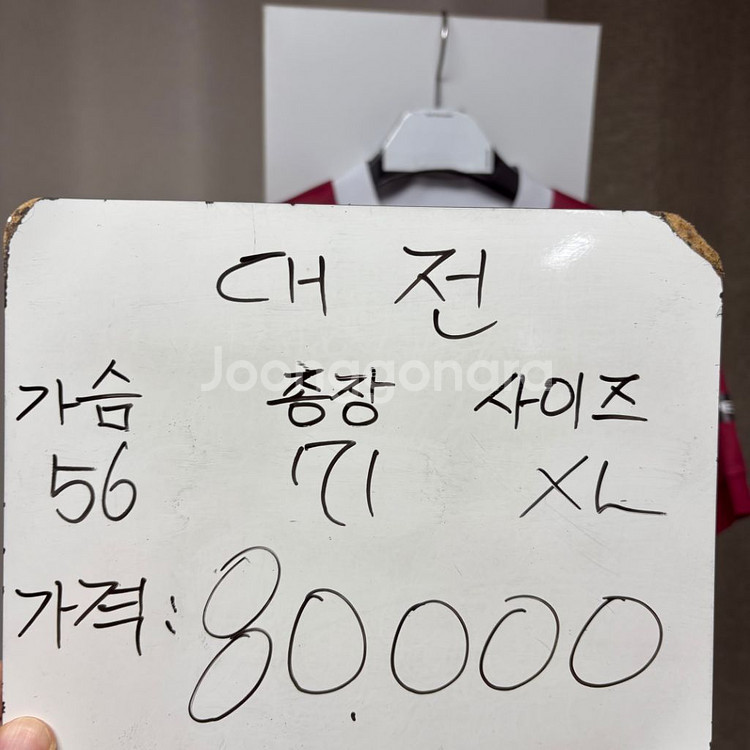 대 전
가슴 총장 사이즈
56 71 XL
가격: 80.000
Joonggonara